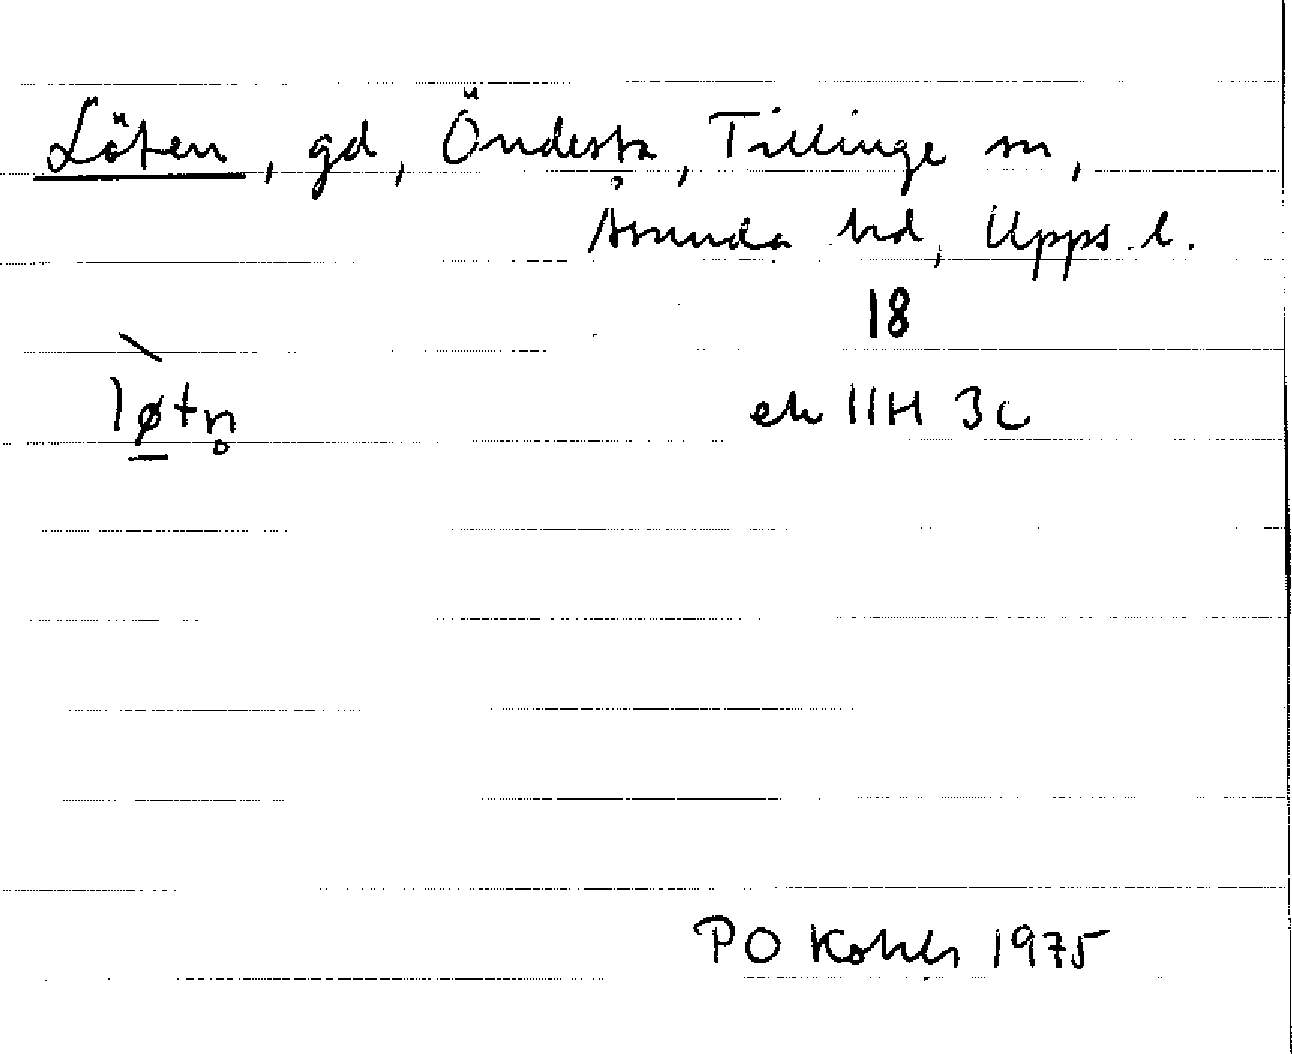 Löten, gd, Öndesta, Tillinge sn,
Åsunda hd, Upps. l.
18
løtn̥ ek 11H 3c
PO 1975